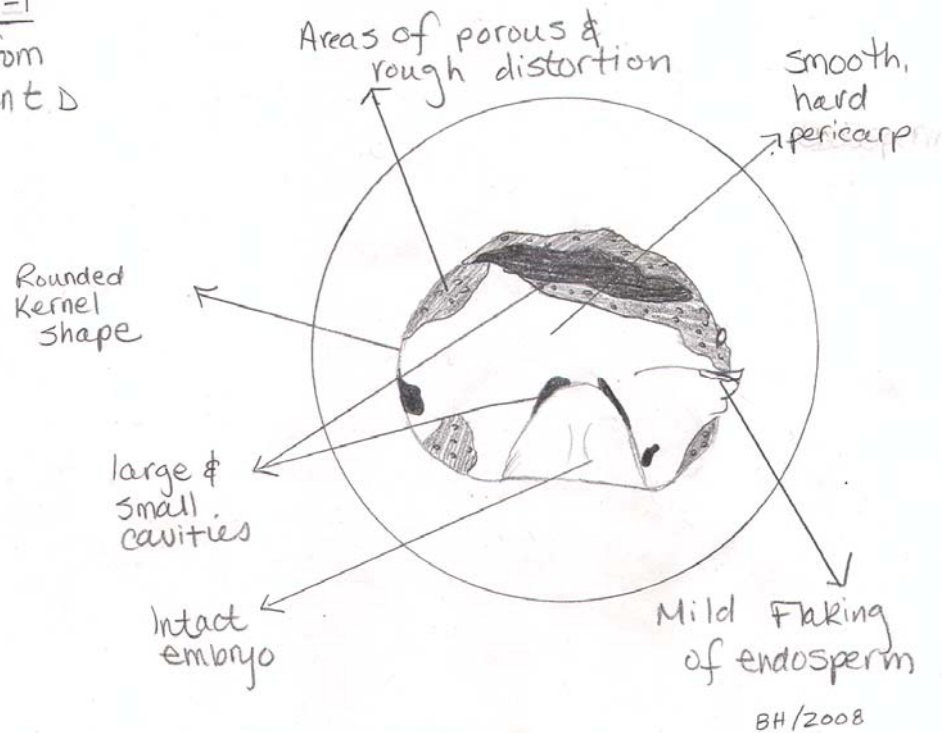 Areas of porous &
rough distortion
smooth,
hard
pericarp
Rounded
Kernel
shape
large &
small
cavities
Intact
embryo
Mild Flaking
of endosperm
BH/2008